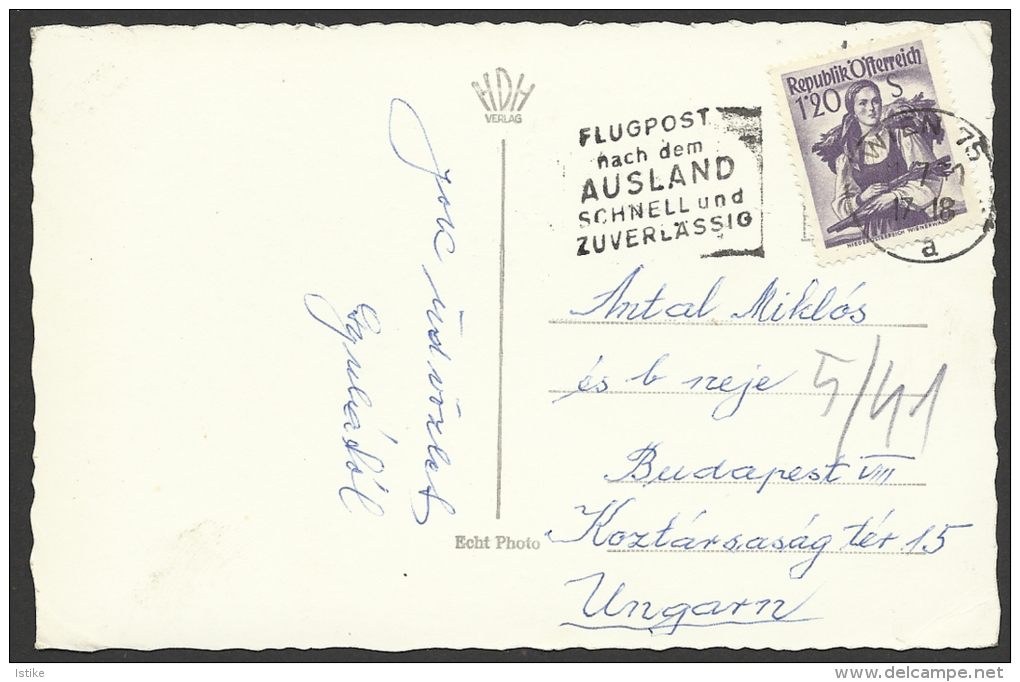 HDH
VERLAG
FLUGPOST
nach dem
AUSLAND
SCHNELL und
ZUVERLÄSSIG
Republik Österreich
1'20 S
NIEDERÖSTERREICH WIENERWALD
WIEN 75
17-18
a
Sok üdvözlet
Gyulától
Antal Miklós
és b neje
5/41
Budapest VIII
Koztársaság tér 15
Ungarn
Echt Photo
Istike
www.delcampe.net